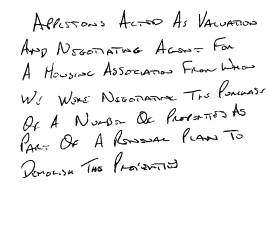 Appletons Acted As Valuation
And Negotiating Agent For
A Housing Association From Whom
We Were Negotiating The Purchase
Of A Number Of Properties As
Part Of A Renewal Plan To
Demolish The Properties